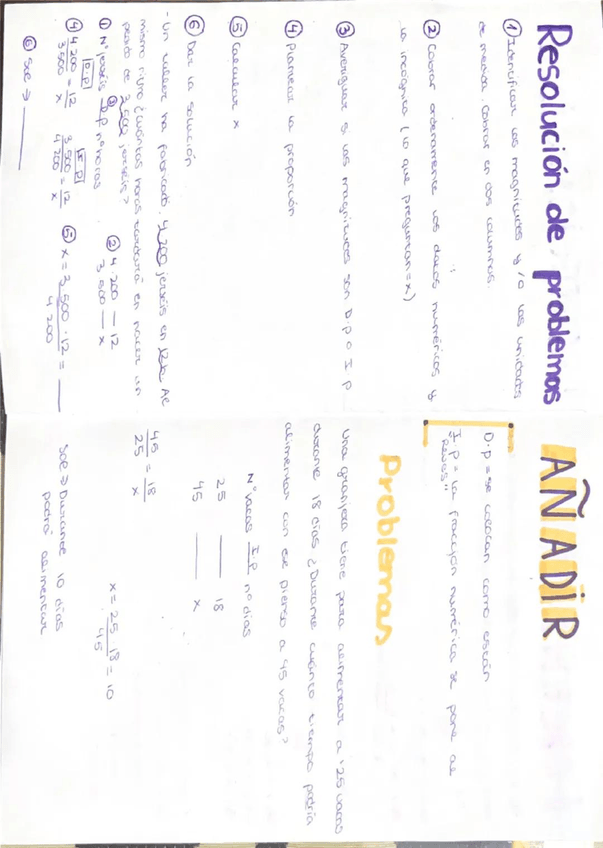 Resolución de problemas
① Identificar las magnitudes y/o las unidades
de medida. Colocar en dos columnas.
② Colocar ordenadamente los datos numéricos y
la incógnita (lo que preguntan = x)
③ Averiguar si las magnitudes son D.p o I.p
④ Plantear la proporción
⑤ Calcular x
⑥ Dar la solución
- Un taller ha fabricado 4.200 jerséis en 12h Al
mismo ritmo ¿Cuántas horas tardará en hacer un
pedido de 3.500 jerséis?
① Nº jerséis D.p nº horas
② 4.200 — 12
3.500 — x
④ D.p
4.200 / 3.500 = 12 / x
I.p
3.500 / 4.200 = 12 / x
⑤ x = 3.500 · 12 / 4.200 =
⑥ Sol ⇒
AÑADIR
D.p = se colocan como están
I.p = la fracción numérica se pone al
revés"
Problemas
Una granjera tiene para alimentar a 25 vacas
durante 18 días ¿Durante cuánto tiempo podría
alimentar con ese pienso a 45 vacas?
Nº vacas I.p nº días
25 — 18
45 — x
45 / 25 = 18 / x
x = 25 · 18 / 45 = 10
Sol ⇒ Durante 10 días
podrá alimentar